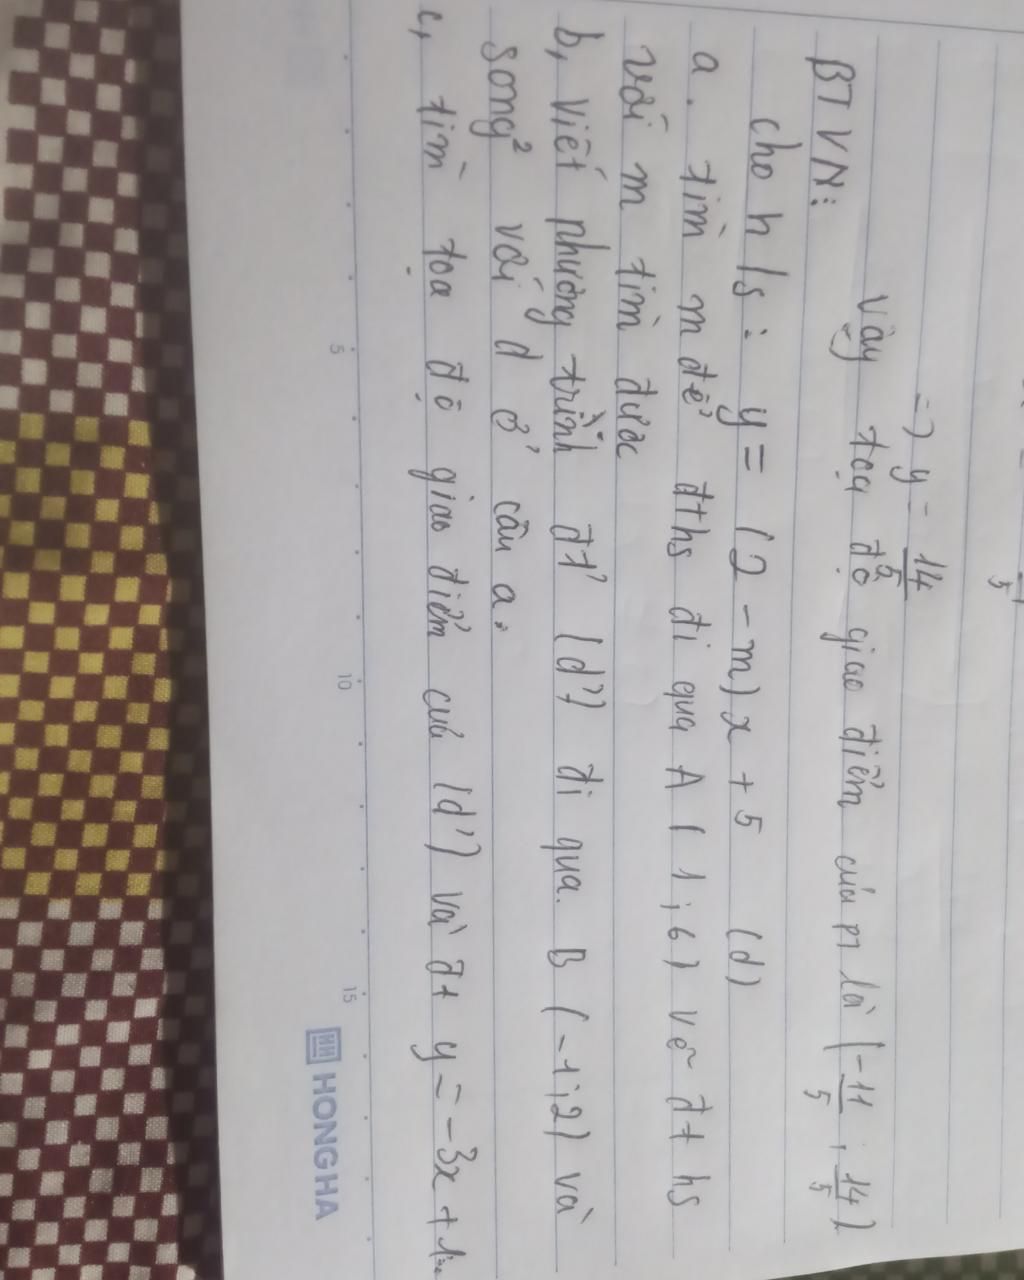 =) y = 14/5
Vậy toạ độ giao điểm của pt là (-11/5 ; 14/5)
BTVN:
cho h/s: y = (2 - m)x + 5 (d)
a. tìm m để đths đi qua A (1;6) vẽ đths
với m tìm được
b, Viết phương trình đt' (d') đi qua B (-1;2) và
song² với d ở câu a.
c, tìm toạ độ giao điểm của (d') và đt y = -3x + 1
5
10
15
HH HONG HA